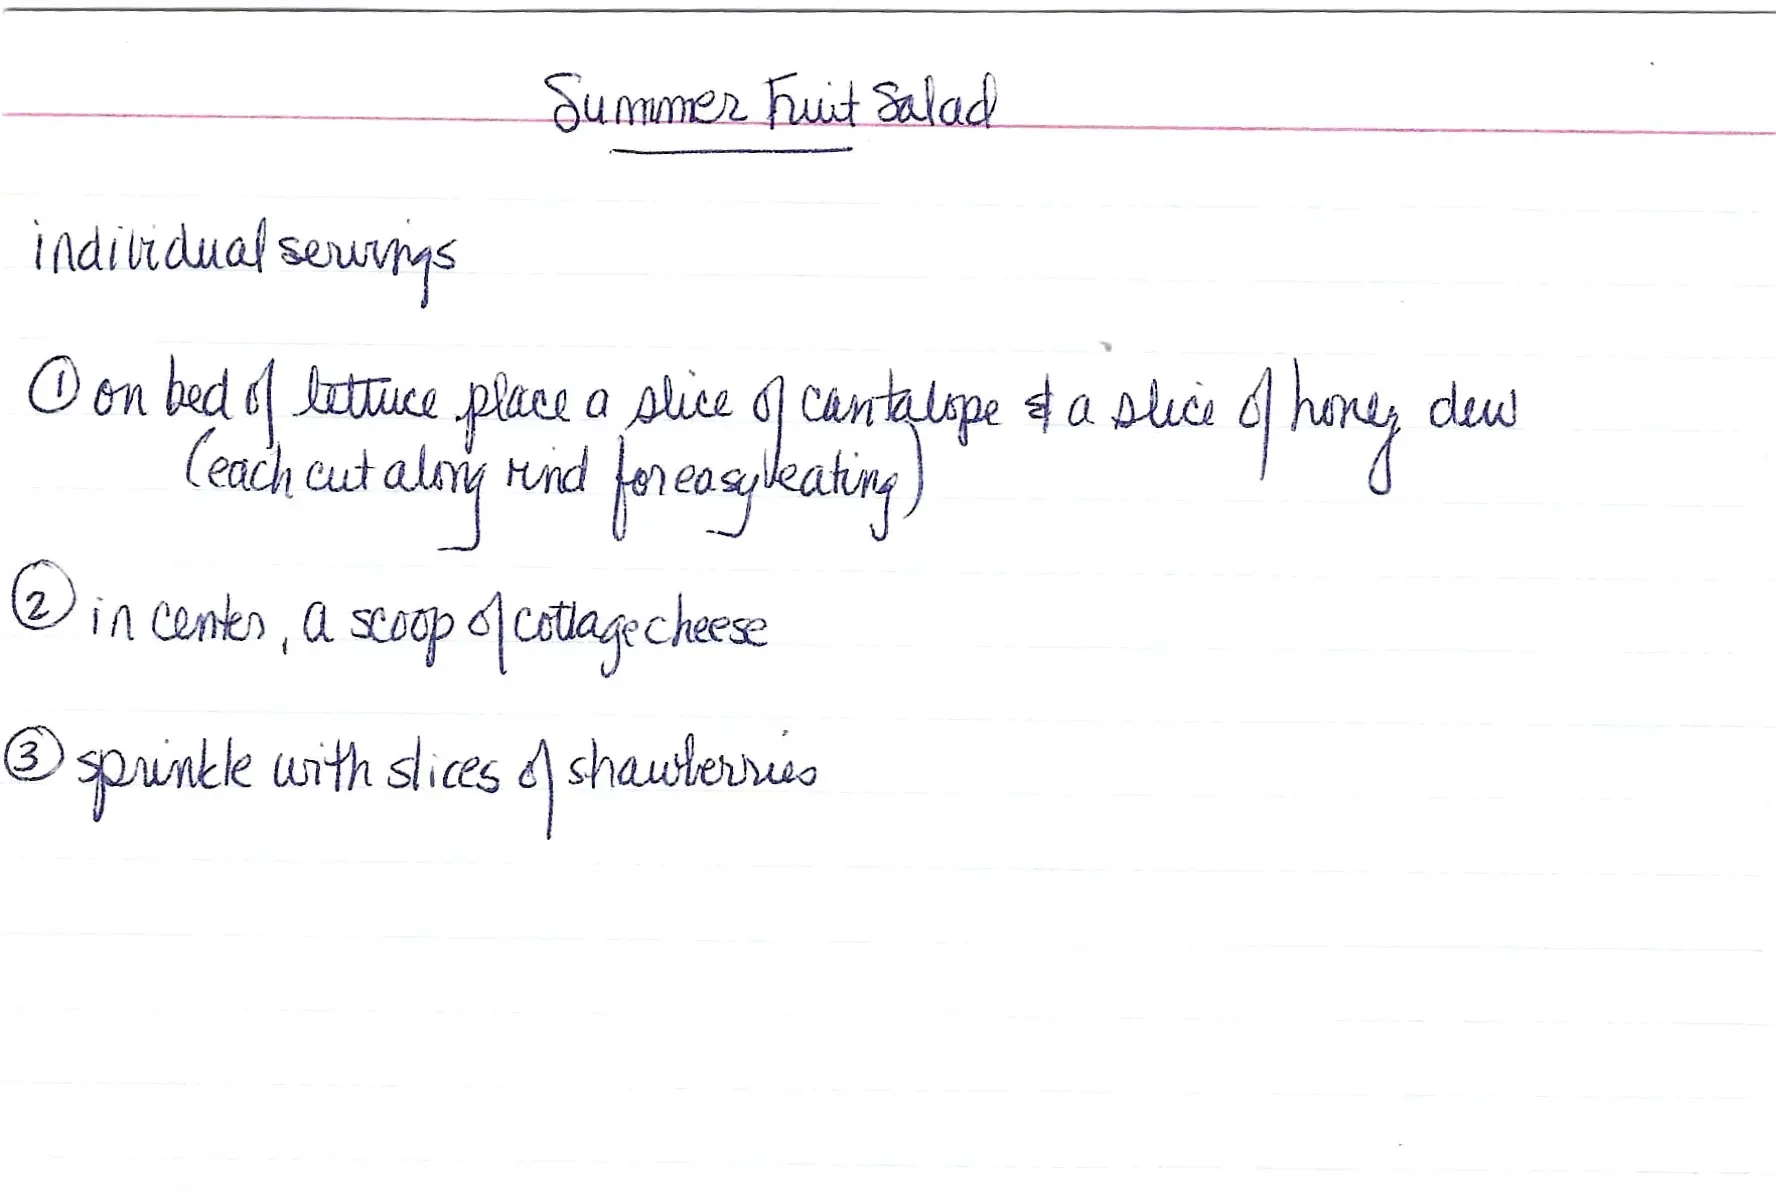 Summer Fruit Salad
individual servings
① on bed of lettuce place a slice of cantalope & a slice of honey dew
(each cut along rind for easy eating)
② in center, a scoop of cottage cheese
③ sprinkle with slices of strawberries